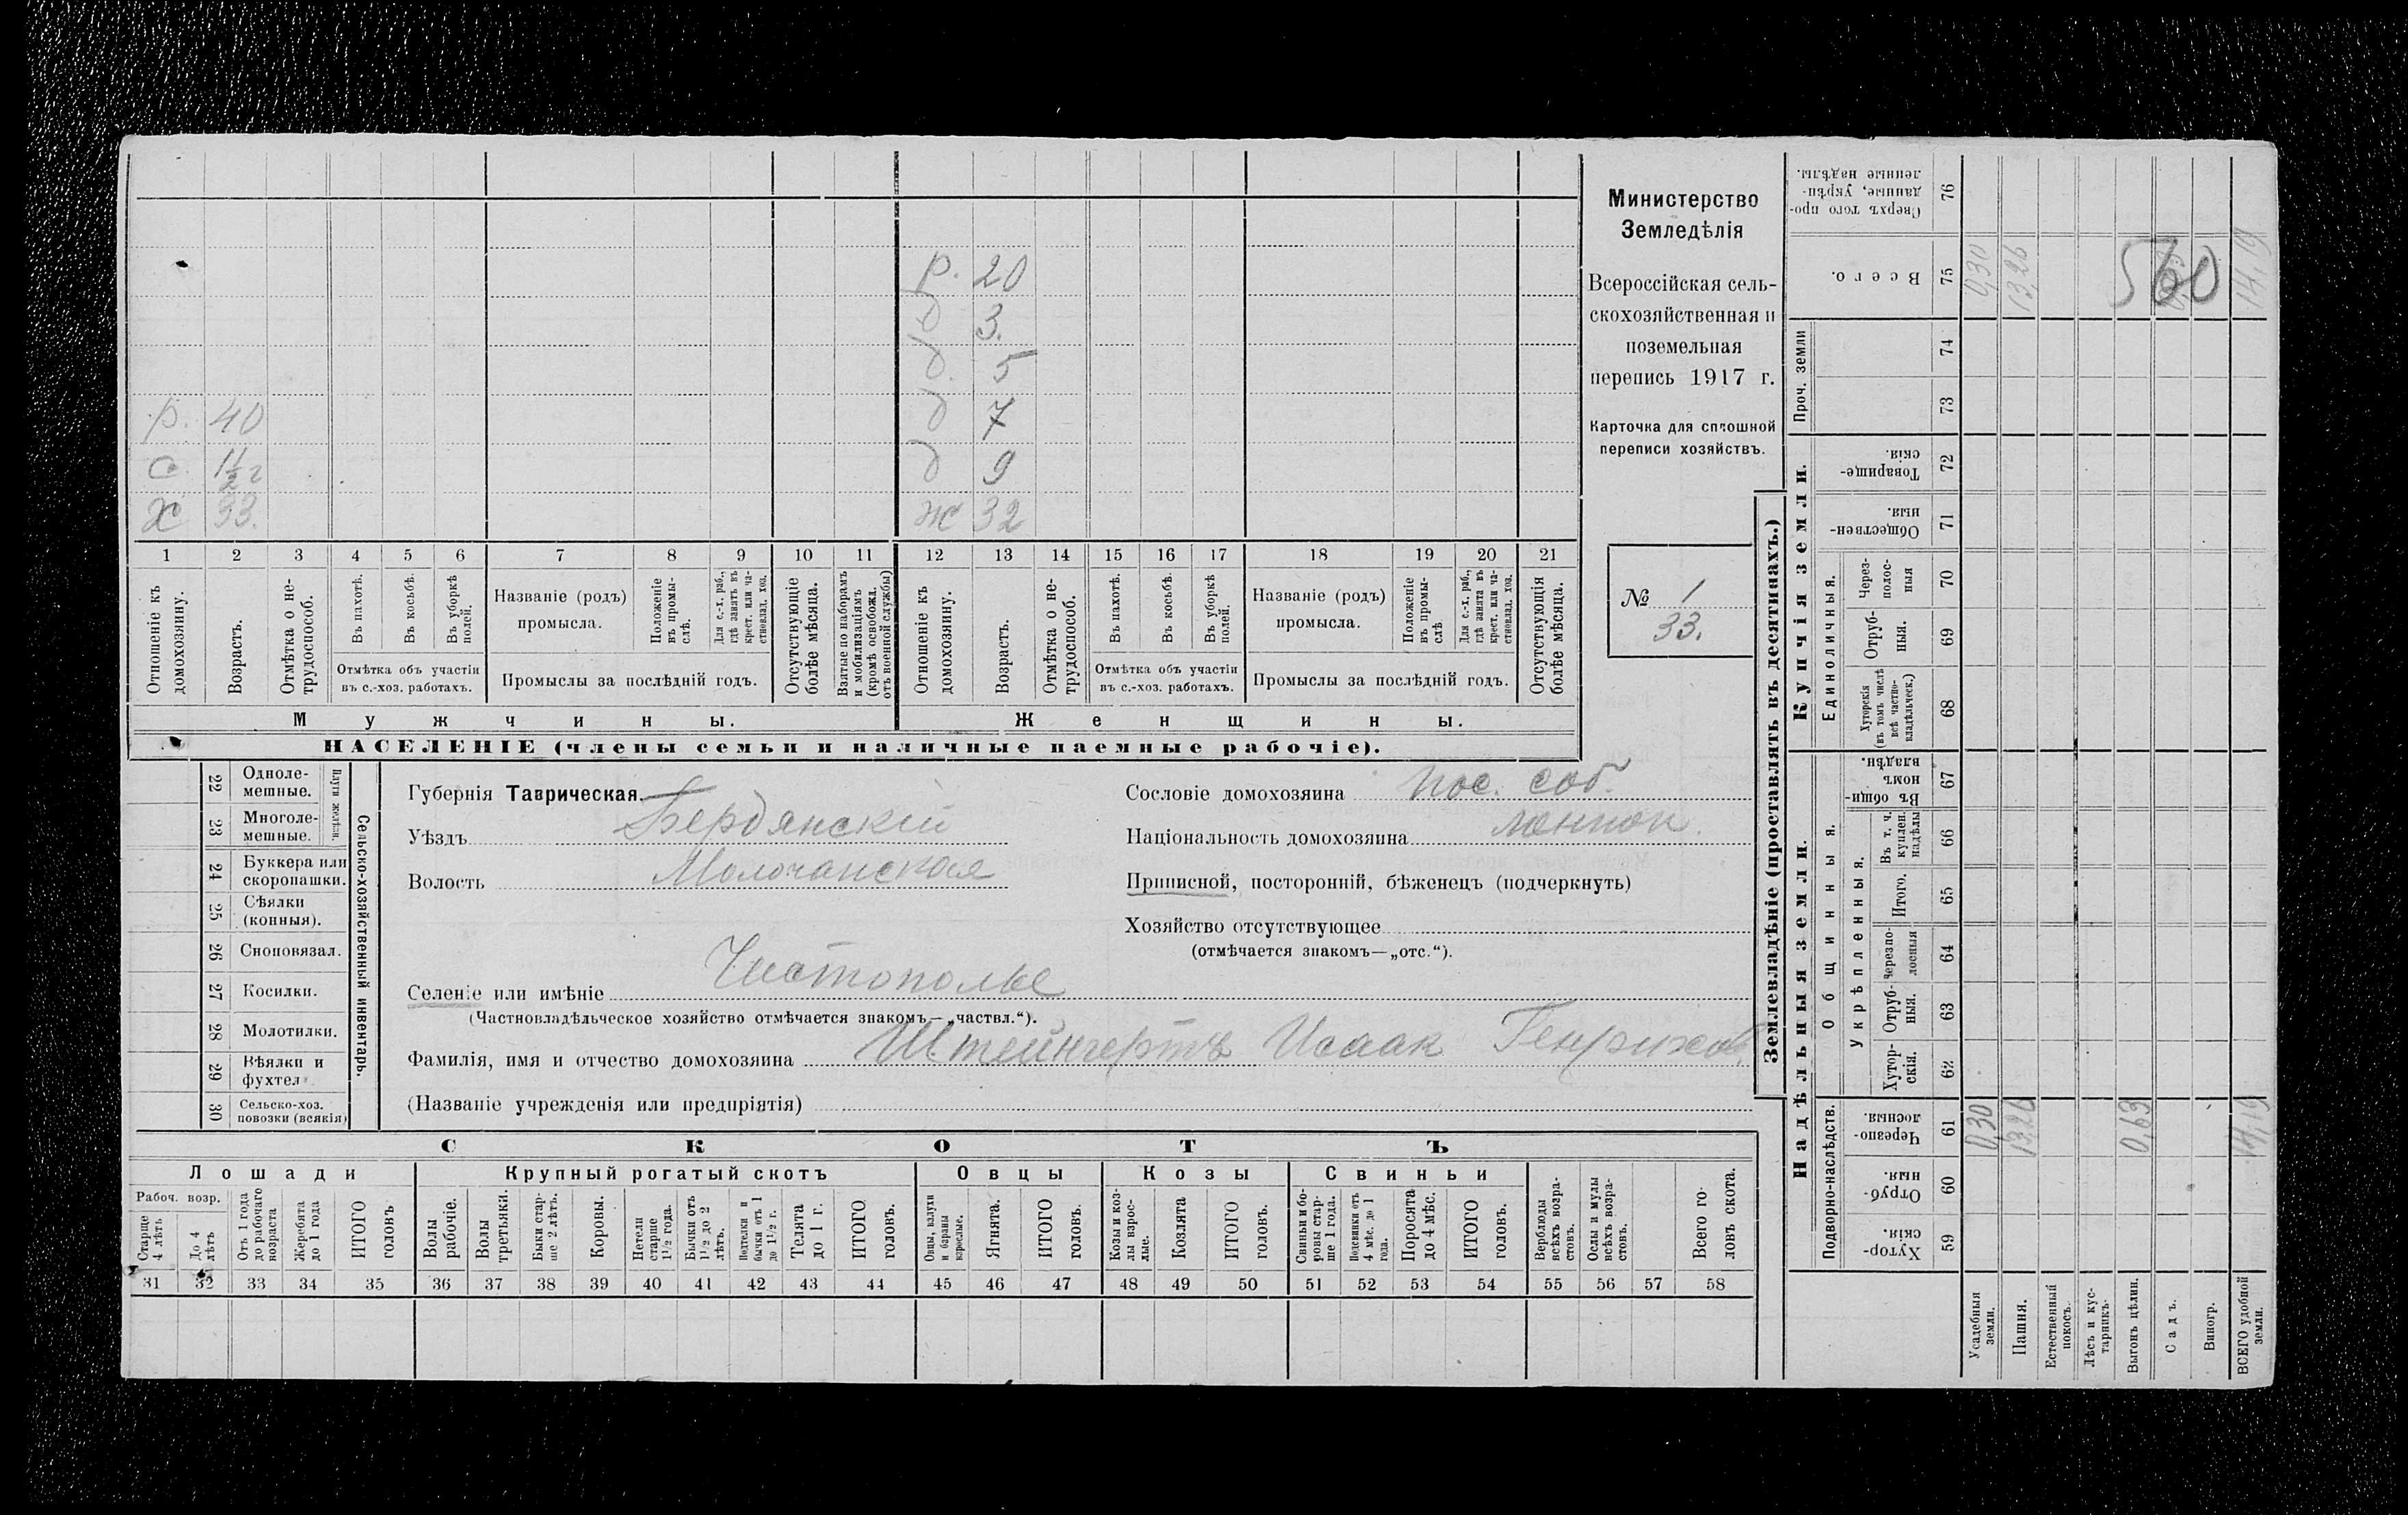 Министерство
Земледѣлія
Всероссійская сель-
скохозяйственная и
поземельная
перепись 1917 г.
Карточка для сплошной
переписи хозяйствъ.
№ 1
33.
р. 20
д 3.
д. 5
р. 40 д 7
с. 1½ г д 9
х 33. ж 32
1 2 3 4 5 6 7 8 9 10 11 12 13 14 15 16 17 18 19 20 21
Отношеніе къ домохозяину.
Возрастъ.
Отмѣтка о не-трудоспособ.
Въ пахотѣ.
Въ косьбѣ.
Въ уборкѣ полей.
Отмѣтка объ участіи въ с.-хоз. работахъ.
Названіе (родъ) промысла.
Положеніе въ промы-слѣ.
Для с.-х. раб., гдѣ занятъ въ крест. или ча-стновлад. хоз.
Промыслы за послѣдній годъ.
Отсутствующіе болѣе мѣсяца.
Взятые по наборамъ и мобилизаціямъ (кромѣ освобожд. отъ военной службы)
Отношеніе къ домохозяину.
Возрастъ.
Отмѣтка о не-трудоспособ.
Въ пахотѣ.
Въ косьбѣ.
Въ уборкѣ полей.
Отмѣтка объ участіи въ с.-хоз. работахъ.
Названіе (родъ) промысла.
Положеніе въ промы-слѣ
Для с.-х. раб., гдѣ занята въ крест. или ча-стновлад. хоз.
Промыслы за послѣдній годъ.
Отсутствующія болѣе мѣсяца.
Мужчины. Женщины.
НАСЕЛЕНІЕ (члены семьи и наличные наемные рабочіе).
22 Одноле-мешные.
23 Многоле-мешные.
Плуги желѣзн.
24 Буккера или скоропашки.
25 Сѣялки (конныя).
26 Сноповязал.
27 Косилки.
28 Молотилки.
29 Вѣялки и фухтел
30 Сельско-хоз. повозки (всякія)
Сельско-хозяйственный инвентарь.
Губернія Таврическая.
Уѣздъ Бердянскій
Волость Молочанская
Сословіе домохозяина пос. соб.
Національность домохозяина
Приписной, посторонній, бѣженецъ (подчеркнуть)
Хозяйство отсутствующее
(отмѣчается знакомъ—„отс.“).
Селеніе или имѣніе Чистополье
(Частновладѣльческое хозяйство отмѣчается знакомъ—„частвл.“).
Фамилія, имя и отчество домохозяина Штейнгертъ Исаак Генрихов
(Названіе учрежденія или предпріятія)
СКОТЪ
Лошади Крупный рогатый скотъ Овцы Козы Свиньи
Рабоч. возр.
Старше 4 лѣтъ
До 4 лѣтъ
Отъ 1 года до рабочаго возраста
Жеребята до 1 года
ИТОГО головъ
Волы рабочіе.
Волы третьяки.
Быки стар-ше 2 лѣтъ.
Коровы.
Нетели старше 1½ года.
Бычки отъ 1½ до 2 лѣтъ.
Подтелки и бычки отъ 1 до 1½ г.
Телята до 1 г.
ИТОГО головъ.
Овцы, валухи и бараны взрослые.
Ягнята.
ИТОГО головъ.
Козы и коз-лы взрос-лые.
Козлята
ИТОГО головъ.
Свиньи и бо-ровы стар-ше 1 года.
Подсвинки отъ 4 мѣс. до 1 года.
Поросята до 4 мѣс.
ИТОГО головъ.
Верблюды всѣхъ возра-стовъ.
Ослы и мулы всѣхъ возра-стовъ.
Всего го-ловъ скота.
31 32 33 34 35 36 37 38 39 40 41 42 43 44 45 46 47 48 49 50 51 52 53 54 55 56 57 58
Землевладѣніе (проставлять въ десятинахъ.)
Надѣльныя земли. Купчія земли. Проч. земли
Подворно-наслѣдств.
Общинныя.
Укрѣпленныя.
Единоличныя.
Сверхъ того про-данные, укрѣп-ленные надѣлы. 76
Всего. 75 0,30 13,26 14,19
560
74
73
Товарище-скія. 72
Обществен-ныя. 71
Через-полос-ныя 70
Отруб-ныя. 69
Хуторскія (въ томъ числѣ всѣ частно-владѣльческ.) 68
Въ общи-номъ владѣн. 67
Въ т. ч. куплен. надѣлы 66
Итого. 65
Черезпо-лосныя 64
Отруб-ныя. 63
Хутор-скія. 62
Черезпо-лосныя. 61 0,30 13,26 0,63 14,19
Отруб-ныя. 60
Хутор-скія. 59
Усадебныя земли.
Пашня.
Естественный покосъ.
Лѣсъ и кус-тарникъ.
Выгонъ цѣлин.
Садъ.
Виногр.
ВСЕГО удобной земли.